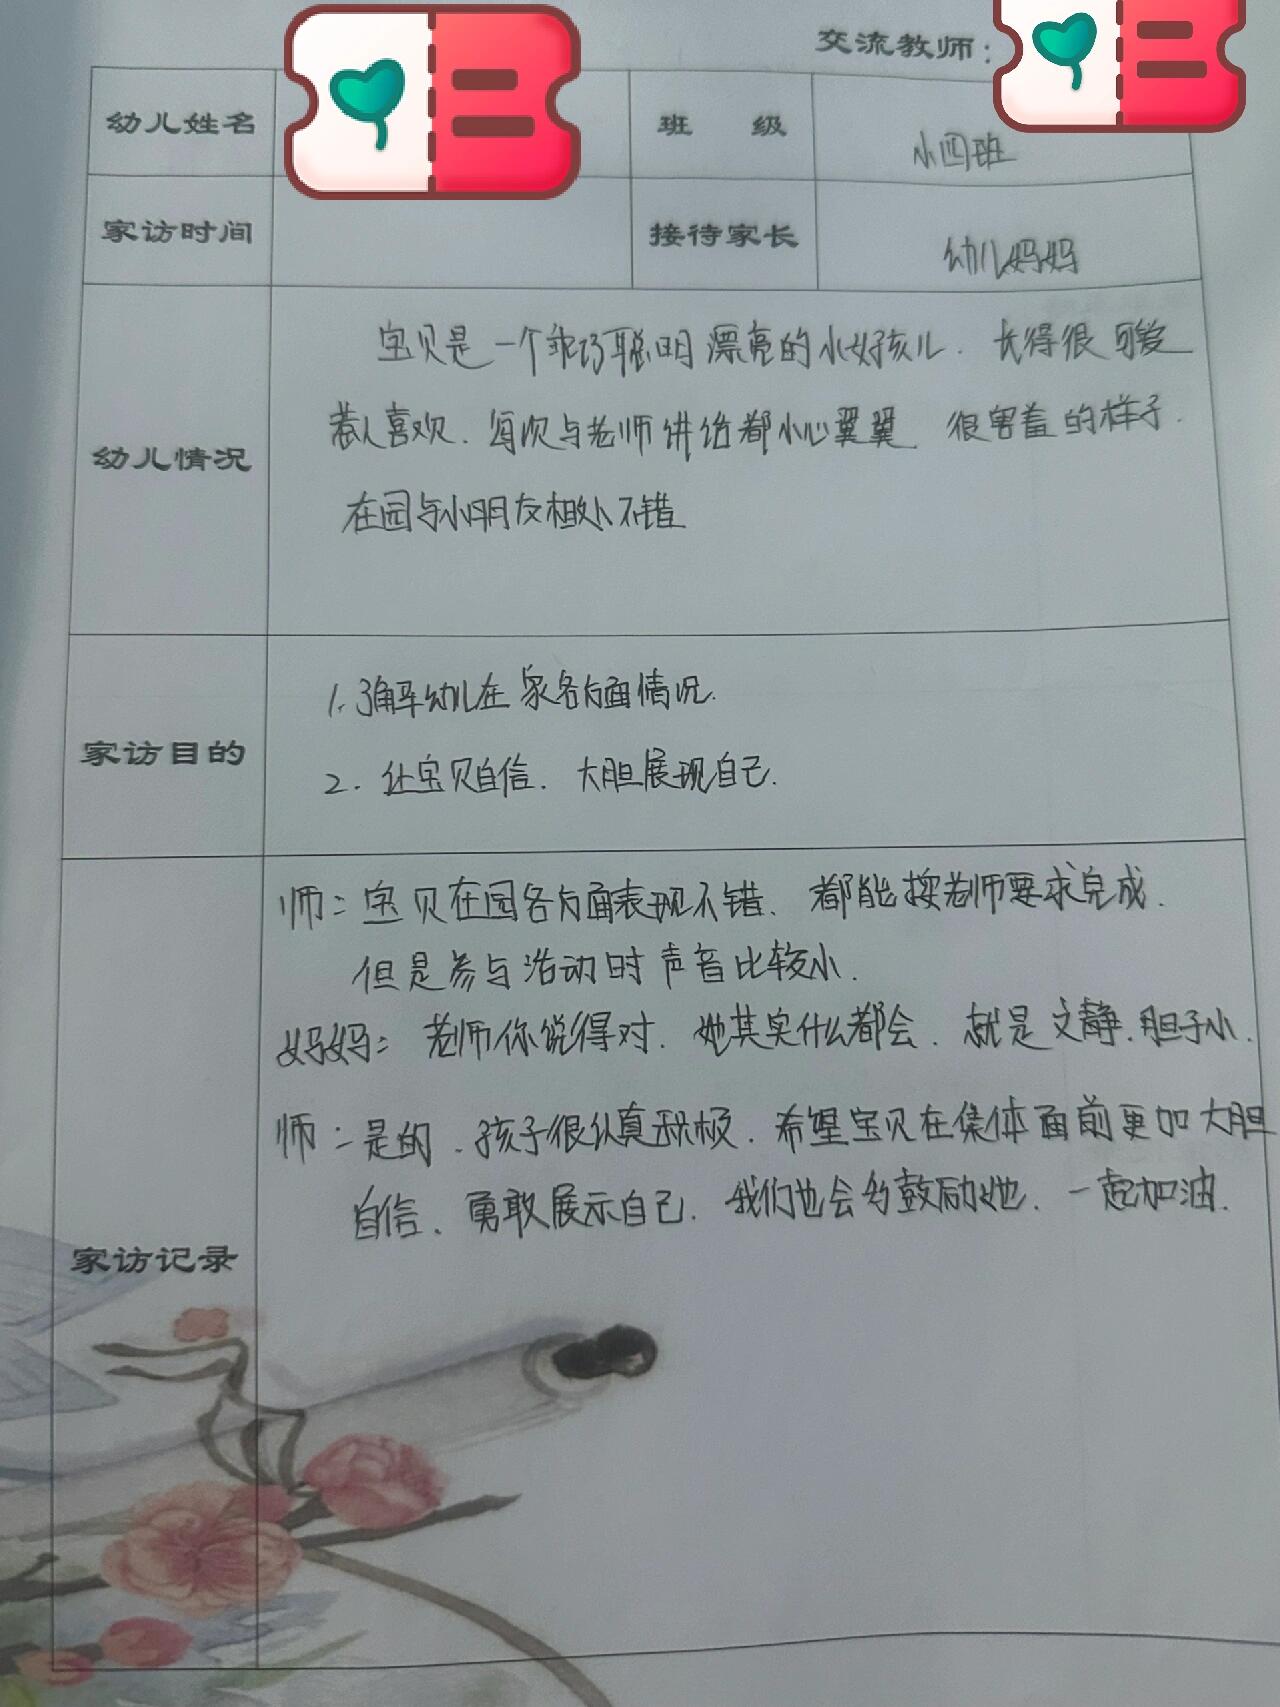 交流教师：
幼儿姓名 班 级 小四班
家访时间 接待家长 幼儿妈妈
宝贝是一个乖巧聪明漂亮的小女孩儿.长得很可爱
惹人喜欢.每次与老师讲话都小心翼翼 很害羞的样子.
幼儿情况
在园与小朋友相处不错
1.了解幼儿在家各方面情况.
家访目的
2.让宝贝自信.大胆展现自己.
师：宝贝在园各方面表现不错.都能按老师要求完成.
但是参与活动时声音比较小.
妈妈：老师你说得对.她其实什么都会.就是文静.胆子小.
师：是的.孩子很认真积极.希望宝贝在集体面前更加大胆
自信.勇敢展示自己.我们也会多鼓励她.一起加油.
家访记录